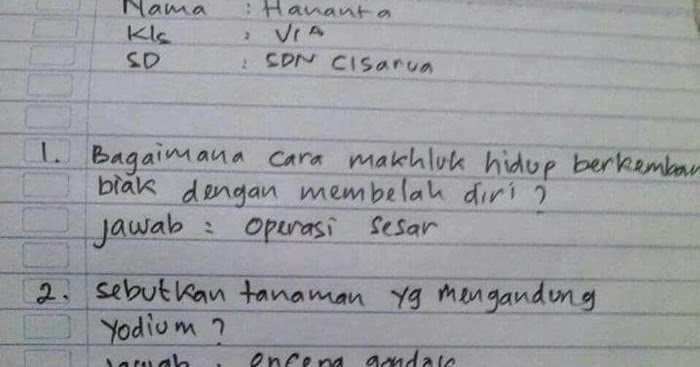 Nama : Hananta
Kls : VIA
SD : SDN Cisarua
1. Bagaimana cara makhluk hidup berkemban
biak dengan membelah diri ?
jawab : operasi sesar
2. sebutkan tanaman yg mengandung
Yodium ?
jawab : enceng gondok